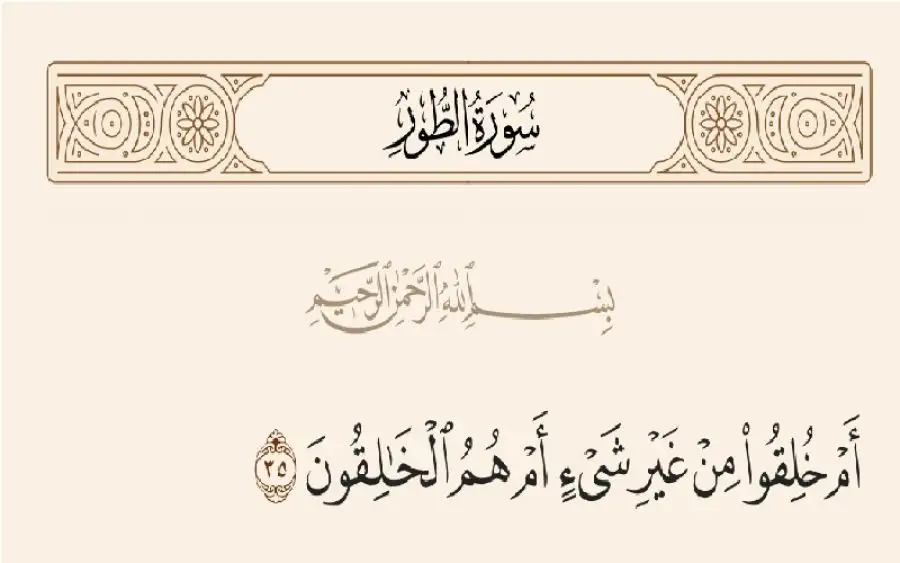 سُورَةُ الطُّورِ
بِسْمِ ٱللَّهِ ٱلرَّحْمَٰنِ ٱلرَّحِيمِ
أَمْ خُلِقُوا۟ مِنْ غَيْرِ شَىْءٍ أَمْ هُمُ ٱلْخَٰلِقُونَ ٣٥